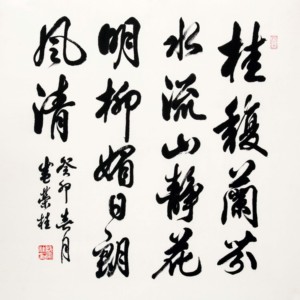 桂馥蘭芬
水流山靜花
明柳媚日朗
風清
癸卯春月
崔榮桂